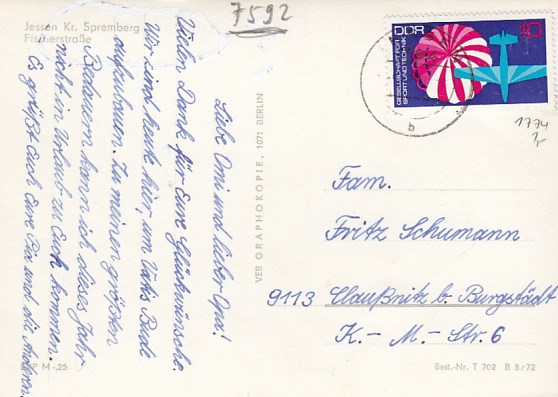 7592
Jessen Kr. Spremberg
Fischerstraße
Liebe Omi und lieber Opa!
Vielen Dank für Eure Glückwünsche.
Wir sind heute hier, um Vatis Bude
abzubauen. Zu meinen größten
Bedauern kann ich dieses Jahr
nicht in Urlaub zu Euch kommen.
Es grüßt Euch Eure Pia und die Anderen.
M -,25
VEB GRAPHOKOPIE, 1071 BERLIN
DDR
10
GESELLSCHAFT FÜR
SPORT UND TECHNIK
b
1774
Fam.
Fritz Schumann
9113 Claußnitz b. Burgstädt
K.-M.-Str. 6
Best.-Nr. T 702 B 8/72